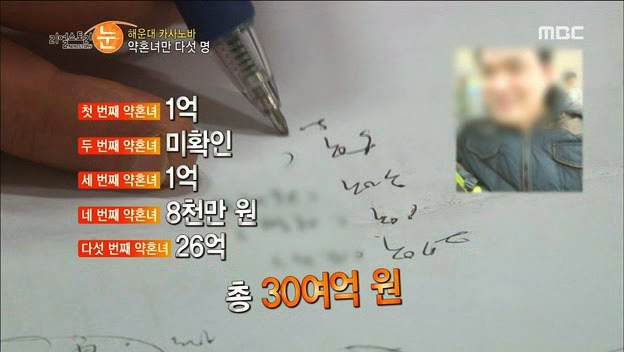 리얼스토리 눈
해운대 카사노바
약혼녀만 다섯 명
MBC
첫 번째 약혼녀 1억
두 번째 약혼녀 미확인
세 번째 약혼녀 1억
네 번째 약혼녀 8천만 원
다섯 번째 약혼녀 26억
총 30여억 원